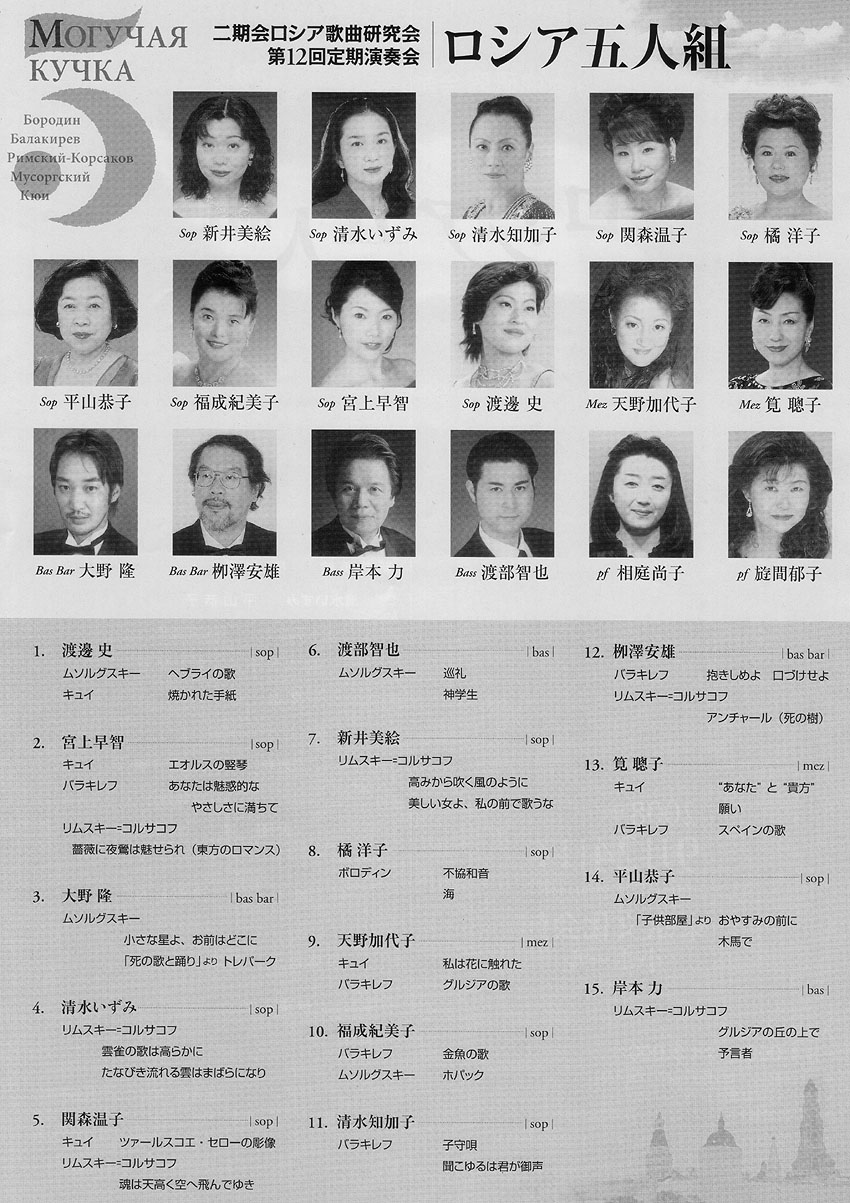 МОГУЧАЯ
КУЧКА
二期会ロシア歌曲研究会
第12回定期演奏会
ロシア五人組
Бородин
Балакирев
Римский-Корсаков
Мусоргский
Кюи
Sop 新井美絵
Sop 清水いずみ
Sop 清水知加子
Sop 関森温子
Sop 橘 洋子
Sop 平山恭子
Sop 福成紀美子
Sop 宮上早智
Sop 渡邊 史
Mez 天野加代子
Mez 筧 聰子
Bas Bar 大野 隆
Bas Bar 栁澤安雄
Bass 岸本 力
Bass 渡部智也
pf 相庭尚子
pf 旋間郁子
1. 渡邊 史 | sop |
ムソルグスキー ヘブライの歌
キュイ 焼かれた手紙
2. 宮上早智 | sop |
キュイ エオルスの竪琴
バラキレフ あなたは魅惑的な
やさしさに満ちて
リムスキー=コルサコフ
薔薇に夜鶯は魅せられ（東方のロマンス）
3. 大野 隆 | bas bar |
ムソルグスキー
小さな星よ、お前はどこに
「死の歌と踊り」より トレパーク
4. 清水いずみ | sop |
リムスキー=コルサコフ
雲雀の歌は高らかに
たなびき流れる雲はまばらになり
5. 関森温子 | sop |
キュイ ツァールスコエ・セローの彫像
リムスキー=コルサコフ
魂は天高く空へ飛んでゆき
6. 渡部智也 | bas |
ムソルグスキー 巡礼
神学生
7. 新井美絵 | sop |
リムスキー=コルサコフ
高みから吹く風のように
美しい女よ、私の前で歌うな
8. 橘 洋子 | sop |
ボロディン 不協和音
海
9. 天野加代子 | mez |
キュイ 私は花に触れた
バラキレフ グルジアの歌
10. 福成紀美子 | sop |
バラキレフ 金魚の歌
ムソルグスキー ホパック
11. 清水知加子 | sop |
バラキレフ 子守唄
聞こゆるは君が御声
12. 栁澤安雄 | bas bar |
バラキレフ 抱きしめよ 口づけせよ
リムスキー=コルサコフ
アンチャール（死の樹）
13. 筧 聰子 | mez |
キュイ “あなた” と “貴方”
願い
バラキレフ スペインの歌
14. 平山恭子 | sop |
ムソルグスキー
「子供部屋」より おやすみの前に
木馬で
15. 岸本 力 | bas |
リムスキー=コルサコフ
グルジアの丘の上で
予言者